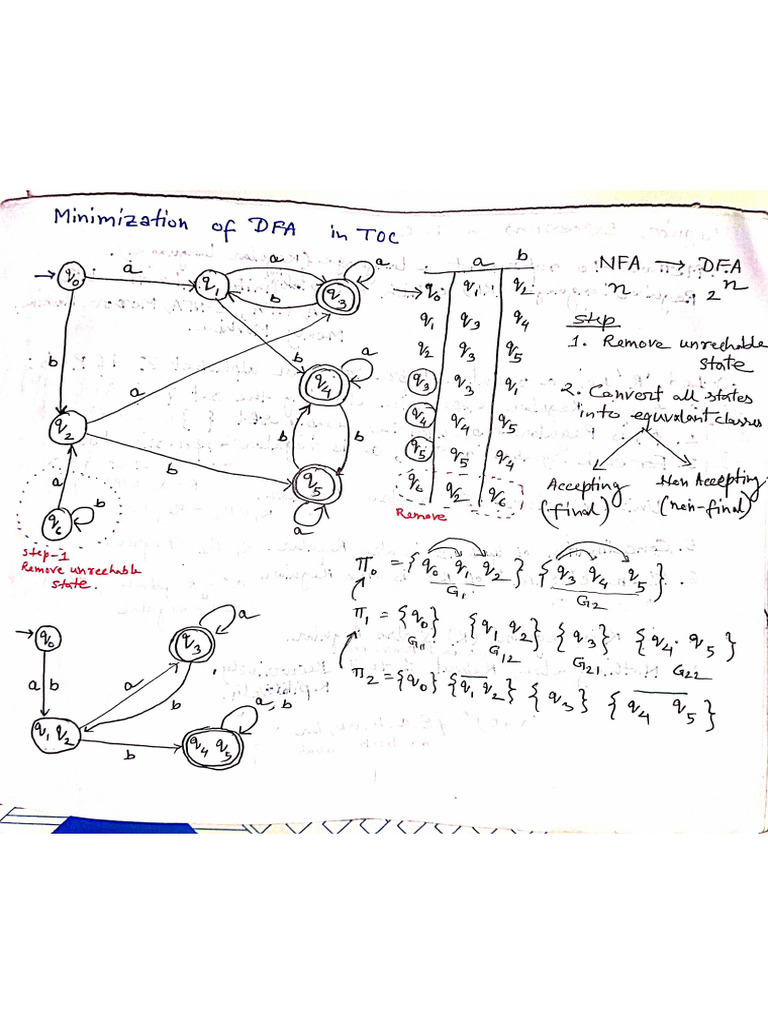 Minimization of DFA in TOC
q0 a q1 a q3 a
b
b b
a q4 a
q2 b b b
a q5
q6 b a
step-1
Remove unrechable
state.
a b
→ q0 q1 q2
q1 q3 q4
q2 q3 q5
q3 q3 q1
q4 q4 q5
q5 q5 q4
q6 q2 q6
Remove
NFA → DFA
n 2^n
step
1. Remove unrechable
state
2. Convert all states
into equvalant classes
Accepting
(final)
Non Accepting
(non-final)
π0 = {q0 q1 q2} {q3 q4 q5}
G1 G2
π1 = {q0} {q1 q2} {q3} {q4 q5}
G11 G12 G21 G22
π2 = {q0} {q1 q2} {q3} {q4 q5}
→ q0 q3 a
a b a b
q1 q2 b q4 q5 a, b